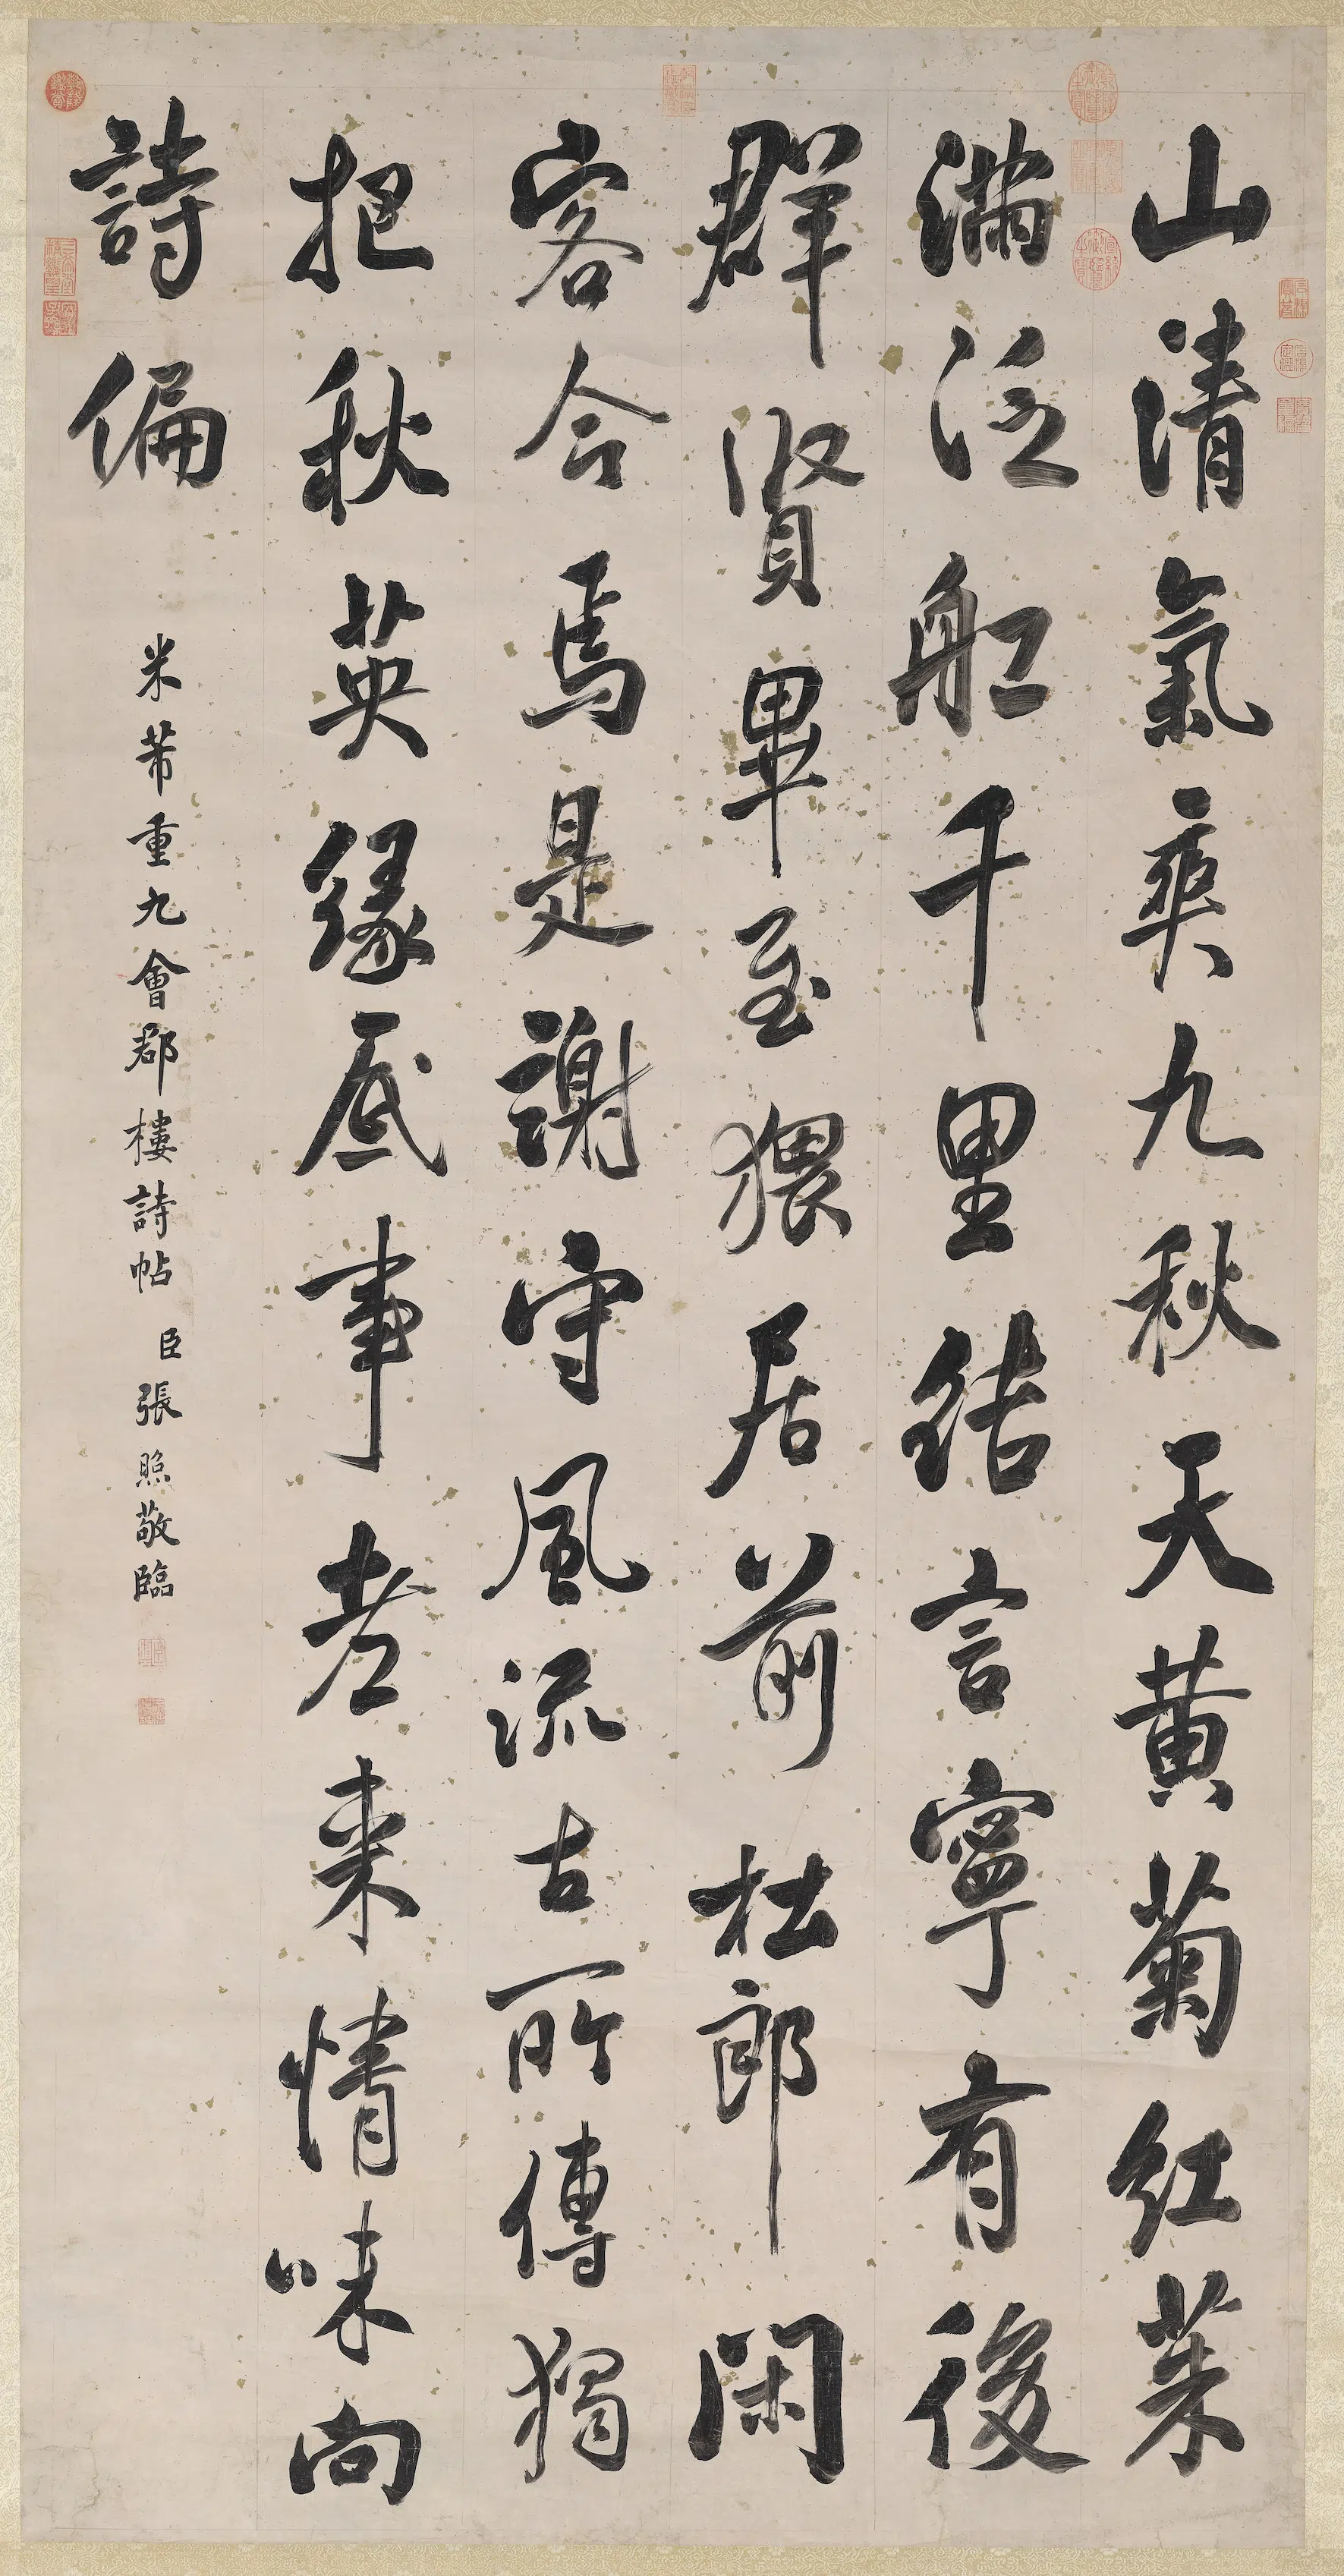 山清氣爽九秋天黄菊紅茱
滿泛舡千里結言寧有後
群賢畢至猥居前杜郎閑
客今焉是謝守風流古所傳獨
把秋英緣底事老來情味向
詩偏
米芾重九會郡樓詩帖 臣張照敬臨